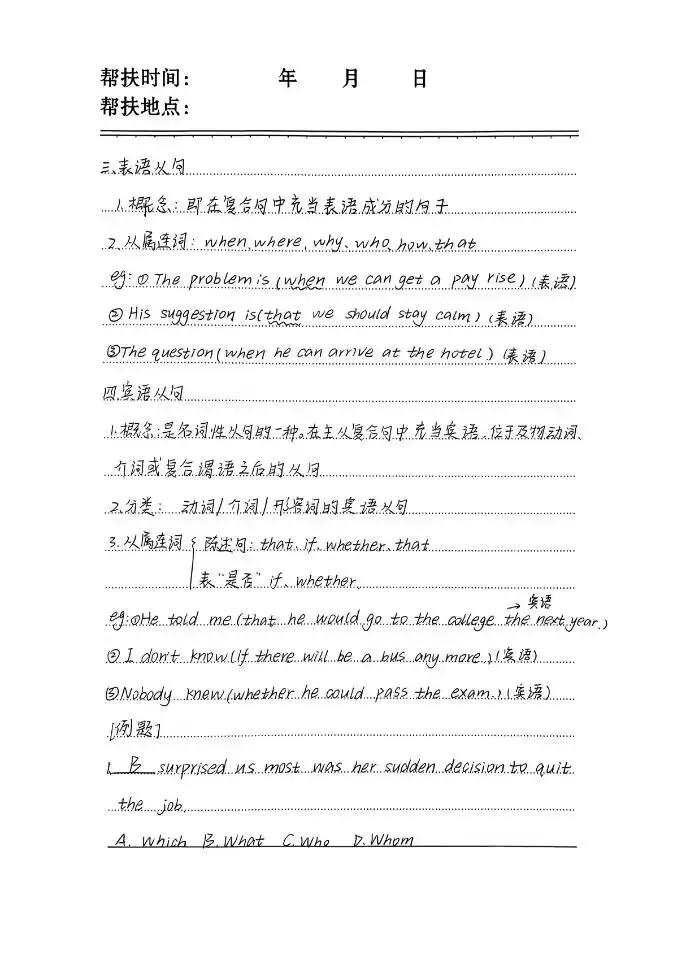 帮扶时间: 年 月 日
帮扶地点:
三、表语从句
1.概念: 即在复合句中充当表语成分的句子
2.从属连词: when, where, why、who、how、that
eg: ① The problem is (when we can get a pay rise) (表语)
② His suggestion is (that we should stay calm) (表语)
③ The question (when he can arrive at the hotel) (表语)
四、宾语从句
1.概念: 是名词性从句的一种。在主从复合句中充当宾语、位于及物动词、
介词或复合谓语之后的从句
2.分类: 动词/介词/形容词的宾语从句
3.从属连词 { 陈述句: that、if、whether、that
表“是否” if、whether.
→宾语
eg: ①He told me (that he would go to the college the next year.)
② I don't know (If there will be a bus any more.) (宾语)
③ Nobody knew (whether he could pass the exam.) (宾语)
[例题]
1. B surprised us most was her sudden decision to quit
the job.
A. Which B. What C. Who D. Whom